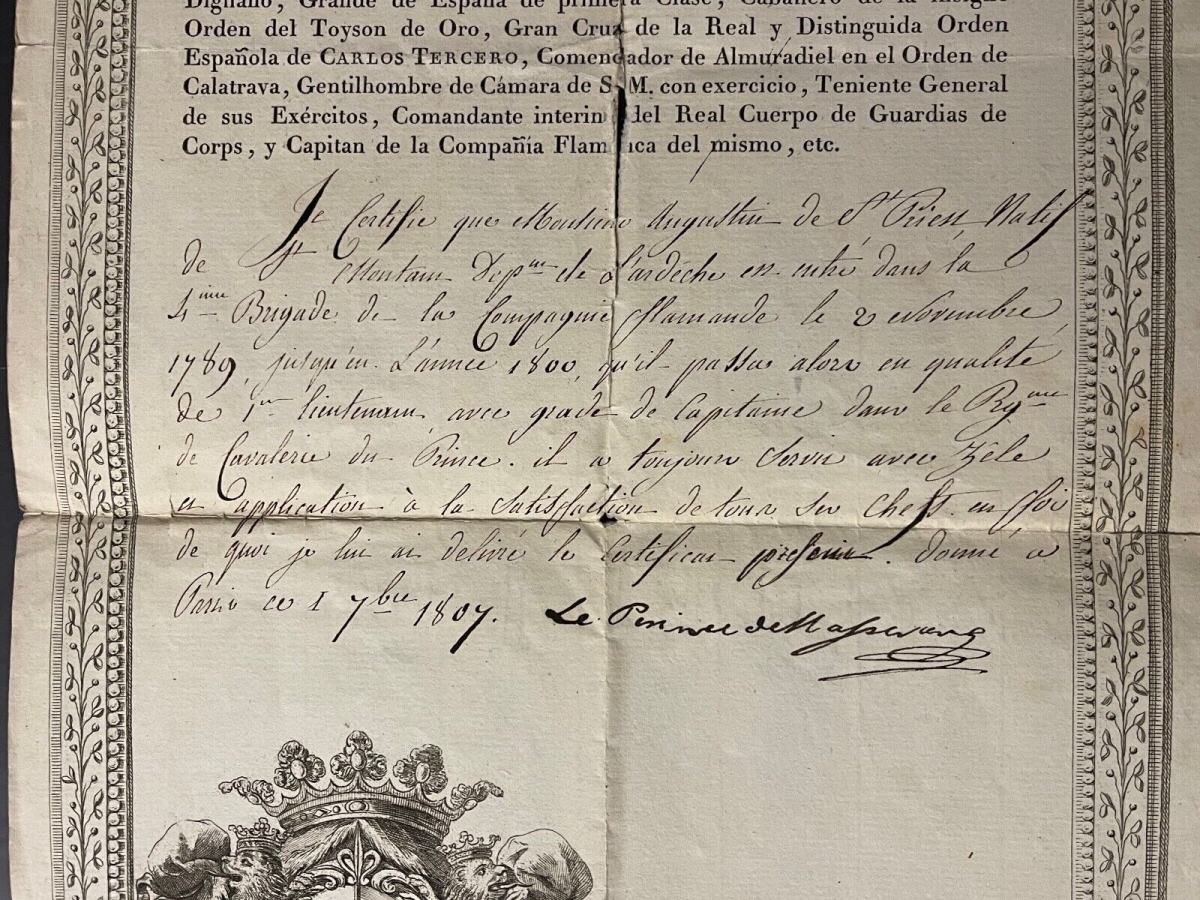 Dignano, Grande de España de primera Clase, Caballero de la insigne
Orden del Toyson de Oro, Gran Cruz de la Real y Distinguida Orden
Española de CARLOS TERCERO, Comendador de Almuradiel en el Orden de
Calatrava, Gentilhombre de Cámara de S. M. con exercicio, Teniente General
de sus Exércitos, Comandante interino del Real Cuerpo de Guardias de
Corps, y Capitan de la Compañía Flamenca del mismo, etc.
Je Certifie que Monsieur Augustin de St Priest, Natif
de St Montain Depm de L'ardèche est entré dans la
4ime Brigade de la Compagnie flamande le 2 Novembre
1789, jusqu'en L'année 1800, qu'il passa alors en qualité
de 1er lieutenant avec grade de Capitaine dans le Rgme
de Cavalerie du Prince. il a toujours Servis avec Zèle
et application à la Satisffaction de tous ses cheffs. en ffoi
de quoi je lui ai delivré le Certificat présent. donné à
Paris ce 1 7bre 1807. Le Prince de Masserano